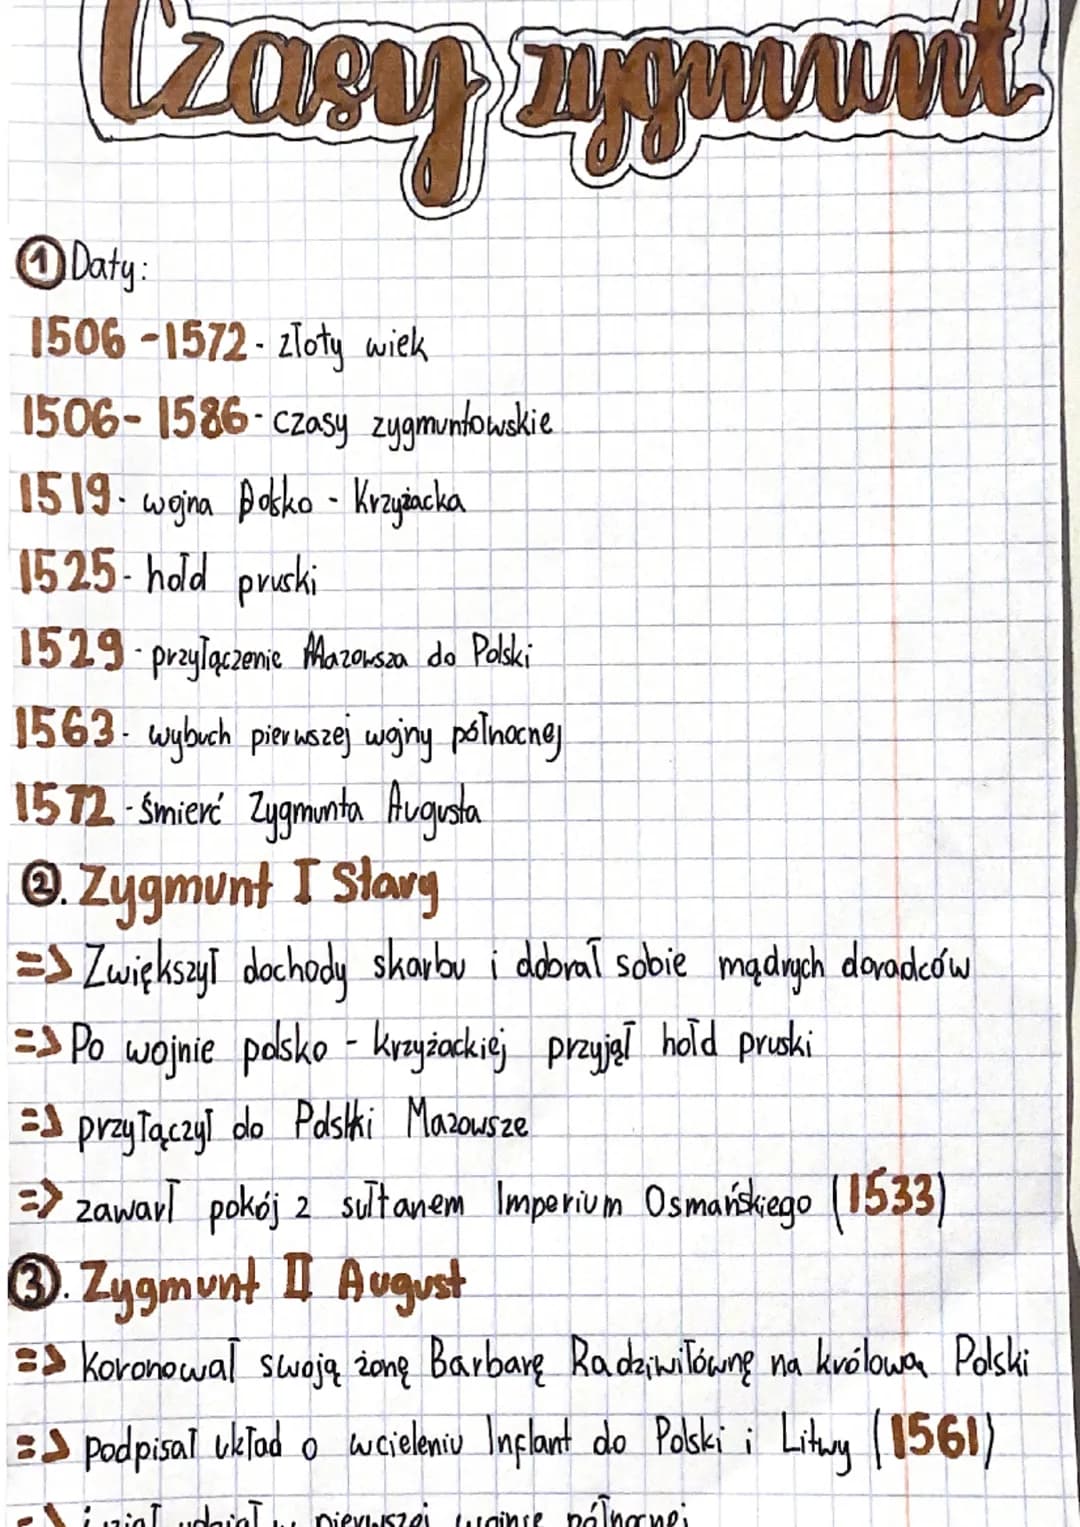 Czasy zygmunt
1 Daty:
1506 - 1572 - złoty wiek
1506 - 1586 - czasy zygmuntowskie
1519 - wojna Polsko - Krzyżacka
1525 - hołd pruski
1529 - przyłączenie Mazowsza do Polski
1563 - wybuch pierwszej wojny północnej
1572 - śmierć Zygmunta Augusta
2. Zygmunt I Stary
=> Zwiększył dochody skarbu i dobrał sobie mądrych doradców
=> Po wojnie polsko - krzyżackiej przyjął hołd pruski
=> przyłączył do Polski Mazowsze
=> zawarł pokój z sułtanem Imperium Osmańskiego (1533)
3. Zygmunt II August
=> koronował swoją żonę Barbarę Radziwiłównę na królową Polski
=> podpisał układ o wcieleniu Inflant do Polski i Litwy (1561)
=> udział w pierwszej wojnie północnej